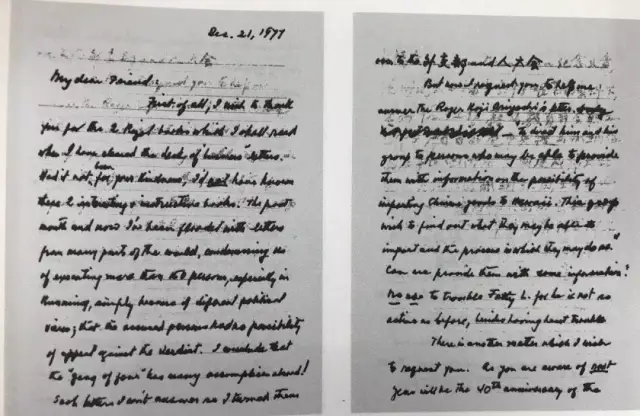 Dec. 21, 1977
My dear Friend:
First of all, I wish to thank
you for the 2 books which I shall read
when I have cleared the desk of business letters.
Had it not been for your kindness, I'd not have known
these 2 interesting & instructive books. The past
month and now I've been flooded with letters
from many parts of the world, condemning us
of executing more than persons, especially in
Kunming, simply because of different political
views; that the accused persons had no possibility
of appeal against the verdict. I conclude that
the "gang of four" has many accomplices abroad!
Such letters I don't answer as I turned them
over to the
But would request you to help me
answer the Roger Koji Ariyoshi's letter.
to direct him and his
group to persons who may be able to provide
them with information on the possibility of
importing Chinese goods to Hawaii. This group
wish to find out what they may be able to
import and the process in which they may do so.
Can we provide them with some information?
No use to trouble Fatty L. for he is not so
active as before, besides having heart trouble
There is another matter which I wish
to request you. As you are aware of next
year will be the 40th anniversary of the